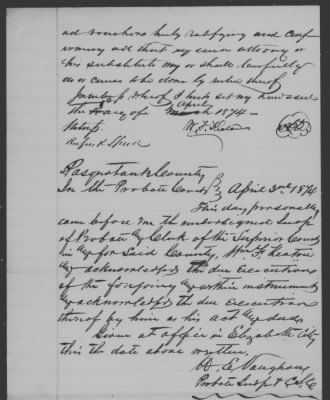 and vouchers hereby ratifying and conf
irming all that my said attorney or
his substitute may or shall lawfully
do or cause to be done by virtue thereof
I hereto set my hand & seal
the day of April 1874 —
W. F. Keaton
Seal
Rufus K. Speed
Pasquotank County
In the Probate Court April 3rd 1874
This day, personally
came before me the undersigned Judge
of Probate & Clerk of the Superior Court
in & for Said County, Wm. F. Keaton
& acknowledged the due execution
of the foregoing & within instrument
& acknowledged the due execution
thereof by him as his act & deed.
Given at office in Elizabeth City
this the date above written.
W. E. Vaughan
Probate Judge & C. S. C.